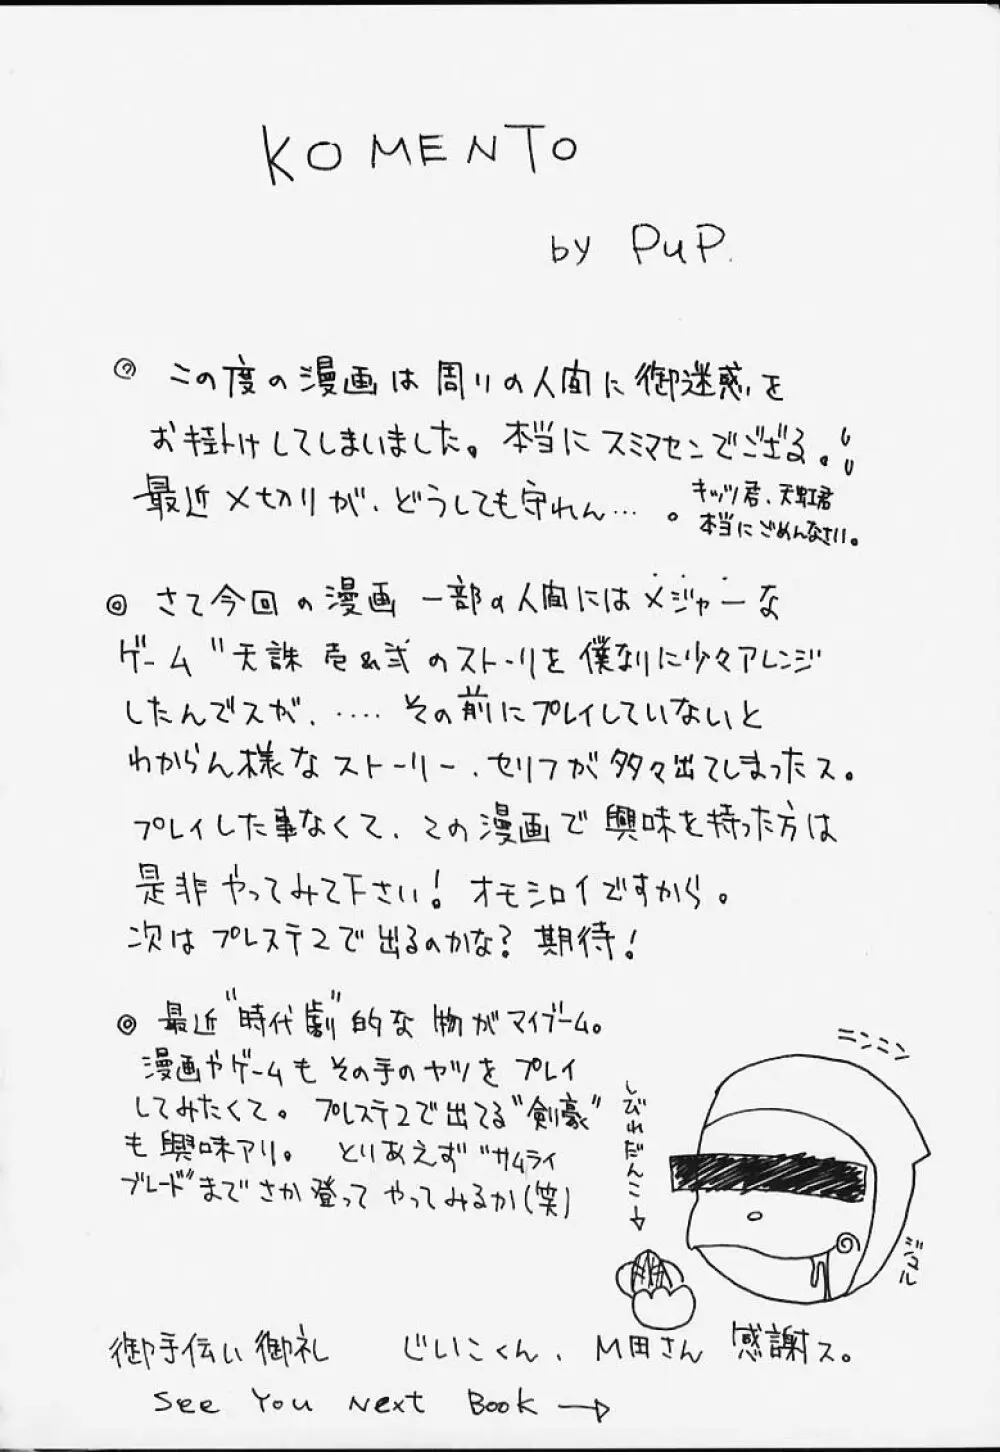 KOMENTO
by PuP.
◎ この度の漫画は周りの人間に御迷惑を
お掛けしてしまいました。本当にスミマセンでござる。!!
最近〆切りが、どうしても守れん…。
キッツ君、天虹君
本当にごめんなさい。
◎ さて今回の漫画 一部の人間にはメジャーな
ゲーム"天誅 壱&弐のストーリを僕なりに少々アレンジ
したんでスが、.... その前にプレイしていないと
わからん様なストーリー、セリフが多々出てしまったス。
プレイした事なくて、この漫画で興味を持った方は
是非やってみて下さい! オモシロイですから。
次はプレステ2で出るのかな? 期待!
◎ 最近"時代劇"的な物がマイブーム。
漫画やゲームもその手のヤツをプレイ
してみたくて。プレステ2で出てる"剣豪"
も興味アリ。とりあえず"サムライ
ブレード"までさか登ってやってみるか(笑)
ニンニン
しびれだんご→
ジュル
御手伝い御礼 じいこくん、M田さん 感謝ス。
See You Next Book →